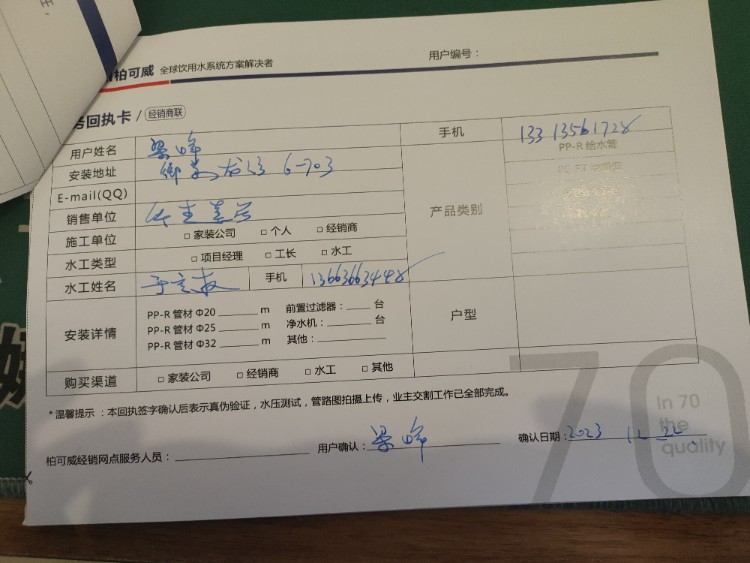 柏可威 全球饮用水系统方案解决者 用户编号：
回执卡 / 经销商联
用户姓名 梁峰 手机 13313561728
安装地址 6-703 产品类别 PP-R 给水管
E-mail(QQ)
销售单位
施工单位 □ 家装公司 □ 个人 □ 经销商
水工类型 □ 项目经理 □ 工长 □ 水工
水工姓名 手机 13663663448
安装详情 PP-R 管材 Φ20 ______ m 前置过滤器：____ 台 户型
PP-R 管材 Φ25 ______ m 净水机：____ 台
PP-R 管材 Φ32 ______ m 其他：______
购买渠道 □ 家装公司 □ 经销商 □ 水工 □ 其他
*温馨提示：本回执签字确认后表示真伪验证，水压测试，管路图拍摄上传，业主交割工作已全部完成。
柏可威经销网点服务人员： 用户确认：梁峰 确认日期：2023 12 22
70
In 70
the
quality